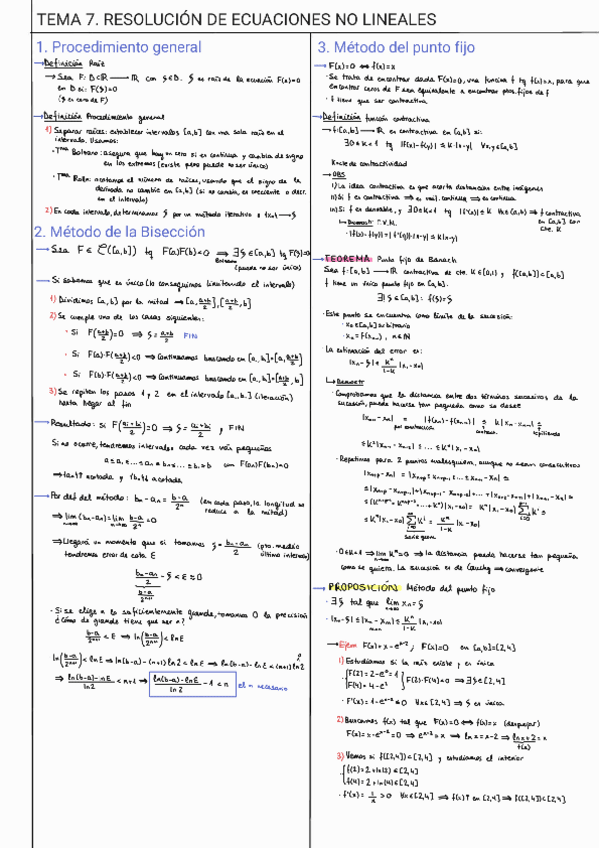 TEMA 7. RESOLUCIÓN DE ECUACIONES NO LINEALES
1. Procedimiento general
→ Definición Raíz
→ Sea F: D⊂ℝ → ℝ con ξ∈D. ξ es raíz de la ecuación F(x)=0
en D si: F(ξ)=0
(ξ es cero de F)
→ Definición Procedimiento general
1) Separar raíces: establecer intervalos [a,b] con una sola raíz en el
intervalo. Usamos:
· Tma Bolzano: asegura que hay un cero si es continua y cambia de signo
en los extremos (existe pero puede no ser único)
· Tma Rolle: acotamos el número de raíces, usando que el signo de la
derivada no cambie en [a,b] (si no cambia, es creciente o decr.
en el intervalo)
2) En cada intervalo, determinamos ξ por un método iterativo
2. Método de la Bisección
→ Sea F ∈ C([a,b]) tq F(a)F(b)<0 ⇒ ∃ξ∈[a,b] tq F(ξ)=0
(puede no ser único)
→ Si sabemos que es único (lo conseguimos limitando el intervalo)
1) Dividimos [a,b] por la mitad → [a, a+b/2], [a+b/2, b]
2) Se cumple uno de los casos siguientes:
· Si F(a+b/2)=0 ⇒ ξ = a+b/2 FIN
· Si F(a)·F(a+b/2)<0 ⇒ Continuamos buscando en [a₁,b₁]=[a, a+b/2]
· Si F(b)·F(a+b/2)<0 ⇒ Continuamos buscando en [a₁,b₁]=[a+b/2, b]
3) Se repiten los pasos 1 y 2 en el intervalo [a₁,b₁] (iteración)
hasta llegar al fin
→ Resultado: si F(ai+bi/2)=0 ⇒ ξ = ai+bi/2, FIN
Si no ocurre, tendremos intervalos cada vez más pequeños
→ Por def del método: bn-an = b-a/2ⁿ (en cada paso, la longitud se
reduce a la mitad)
⇒ lim (bn-an) = lim b-a/2ⁿ = 0
⇒ Llegará un momento que si tomamos ξ = bn+an/2 (pto. medio
último intervalo)
tendremos error de cota ε
· Si se elige n lo suficientemente grande, tomamos 0 la precisión
¿Cómo de grande tiene que ser n?
⇒ ln(b-a)-lnε/ln2 < n+1 ⇒ ln(b-a)-lnε/ln2 - 1 < n el n necesario
3. Método del punto fijo
→ F(x)=0 ⇔ f(x)=x
· Se trata de encontrar dada F(x)=0, una función f tq f(x)=x, para que
encontrar ceros de F sea equivalente a encontrar ptos. fijos de f
· f tiene que ser contractiva
→ Definición función contractiva
→ f:[a,b] → ℝ es contractiva en [a,b] si:
∃ 0≤K<1 tq |f(x)-f(y)| ≤ K|x-y| ∀x,y∈[a,b]
K=cte de contractividad
→ OBS
i) La idea contractiva es que acorta distancias entre imágenes
→ TEOREMA Punto fijo de Banach
Sea f:[a,b] → ℝ contractiva de cte. K∈[0,1) y f([a,b])⊂[a,b]
f tiene un único punto fijo en [a,b].
∃!ξ∈[a,b]: f(ξ)=ξ
· Este punto se encuentra como límite de la sucesión:
· x₀∈[a,b] arbitrario
· La estimación del error es:
|xn-ξ| ≤ Kⁿ/1-K |x₁-x₀|
→ Demostr
· Comprobamos que la distancia entre dos términos sucesivos de la
sucesión, puede hacerse tan pequeña como se desee
· Repetimos para 2 puntos cualesquiera, aunque no sean consecutivos
· 0≤K<1 ⇒ lim Kⁿ=0 ⇒ la distancia puede hacerse tan pequeña
como se quiera. La sucesión es de Cauchy ⇒ convergente
→ PROPOSICIÓN Método del punto fijo
· ∃ξ tal que lim xn=ξ
→ Ejem F(x)=x-e^(x-2); F(x)=0 en [a,b]=[2,4]
1) Estudiamos si la raíz existe y es única
{F(2)=2-e⁰=1
{F(4)=4-e² } F(2)·F(4)<0 ⇒ ∃ξ∈[2,4]
· F'(x)=1-e^(x-2)≤0 ∀x∈[2,4] ⇒ ξ es única
2) Buscamos f(x) tal que F(x)=0⇔f(x)=x (despejar)
F(x)=x-e^(x-2)=0 ⇒ e^(x-2)=x ⇒ lnx=x-2 ⇒ lnx+2=x
f(x)
3) Vemos si f([2,4])⊂[2,4] y estudiamos el interior
{f(2)=2+ln(2)∈[2,4]
{f(4)=2+ln(4)∈[2,4]
· f'(x)=1/x>0 ∀x∈[2,4] ⇒ f(x)↑ en [2,4] ⇒ f([2,4])⊂[2,4]